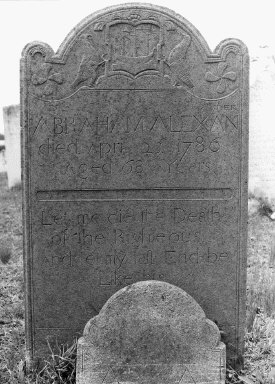 ABRAHAM ALEXAN
DER
died April 23 1786
Aged 68 Years
Let me die the Death
of the Righteous
and let my last End be
Like his